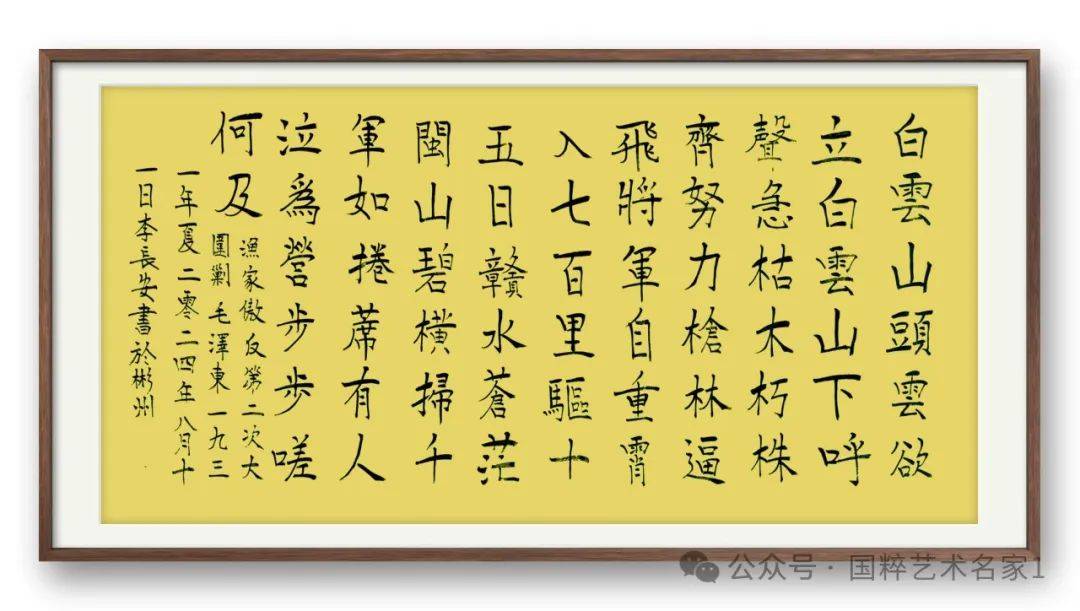 白雲山頭雲欲
立白雲山下呼
聲急枯木朽株
齊努力槍林逼
飛將軍自重霄
入七百里驅十
五日贛水蒼茫
閩山碧橫掃千
軍如捲蓆有人
泣爲營步步嗟
何及
漁家傲反第二次大
圍剿毛澤東一九三
一年夏二零二四年八月十
一日李長安書於彬州
公众号·国粹艺术名家1